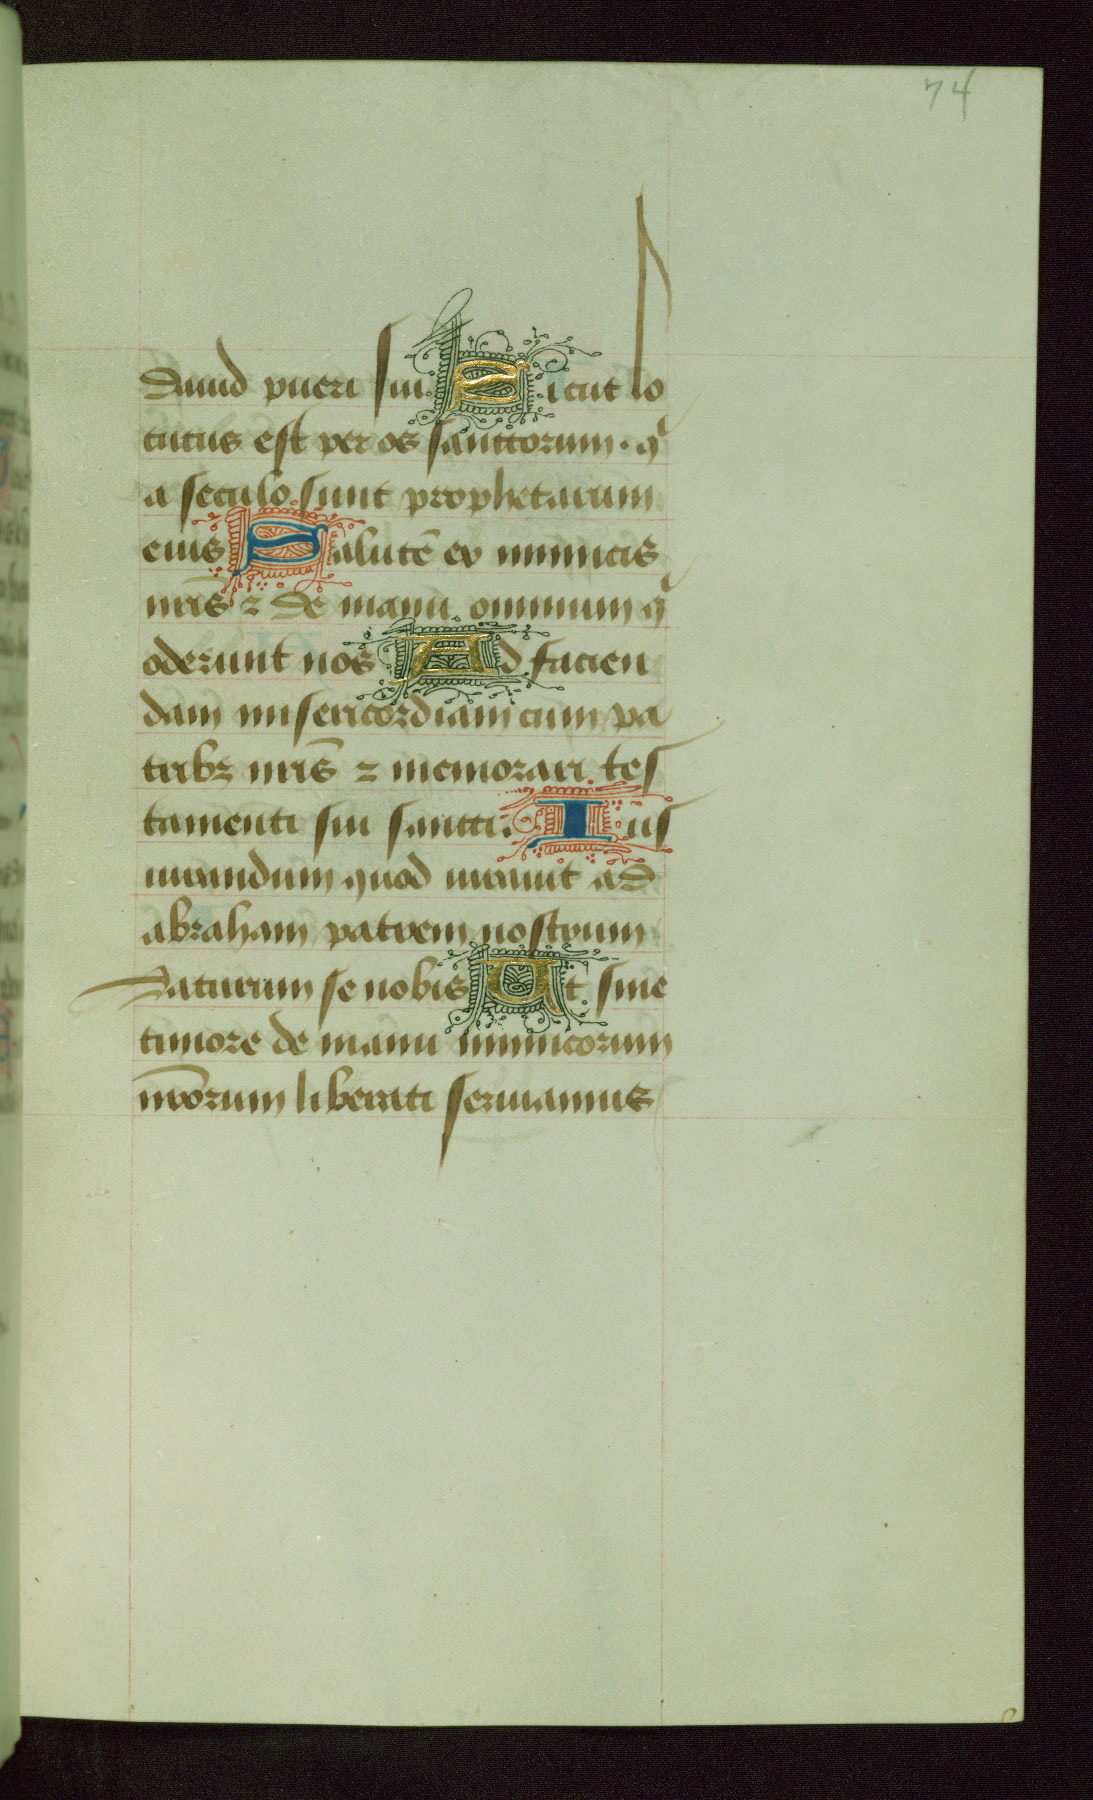 74
dauid pueri sui. Sicut lo
cutus est per os sanctorum. qͥ
a seculo sunt prophetarum
eius Salutē ex inimicis
nrīs ⁊ de manu omnium qͥ
oderunt nos Ad facien
dam misericordiam cum pa
tribꝫ nrīs ⁊ memorari tes
tamenti sui sancti. Ius
iurandum quod iurauit ad
abraham patrem nostrum
Daturum se nobis Ut sine
timore de manu inimicorum
nr̄orum liberati seruiamus